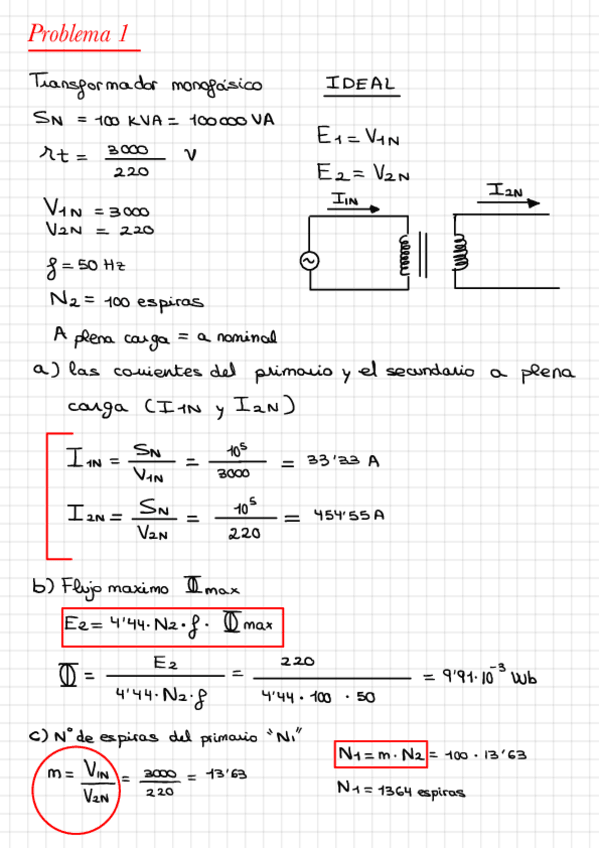 Problema 1
Transformador monofásico IDEAL
SN = 100 KVA = 100000 VA
rt = 3000 / 220 V
E1 = V1N
E2 = V2N
V1N = 3000
V2N = 220
I1N
I2N
f = 50 Hz
N2 = 100 espiras
A plena carga = a nominal
a) las corrientes del primario y el secundario a plena
carga (I1N y I2N)
I1N = SN / V1N = 10⁵ / 3000 = 33'33 A
I2N = SN / V2N = 10⁵ / 220 = 454'55 A
b) Flujo maximo Φmax
E2 = 4'44 · N2 · f · Φmax
Φ = E2 / 4'44 · N2 · f = 220 / 4'44 · 100 · 50 = 9'91 · 10⁻³ Wb
c) Nº de espiras del primario "N1"
m = V1N / V2N = 3000 / 220 = 13'63
N1 = m · N2 = 100 · 13'63
N1 = 1364 espiras